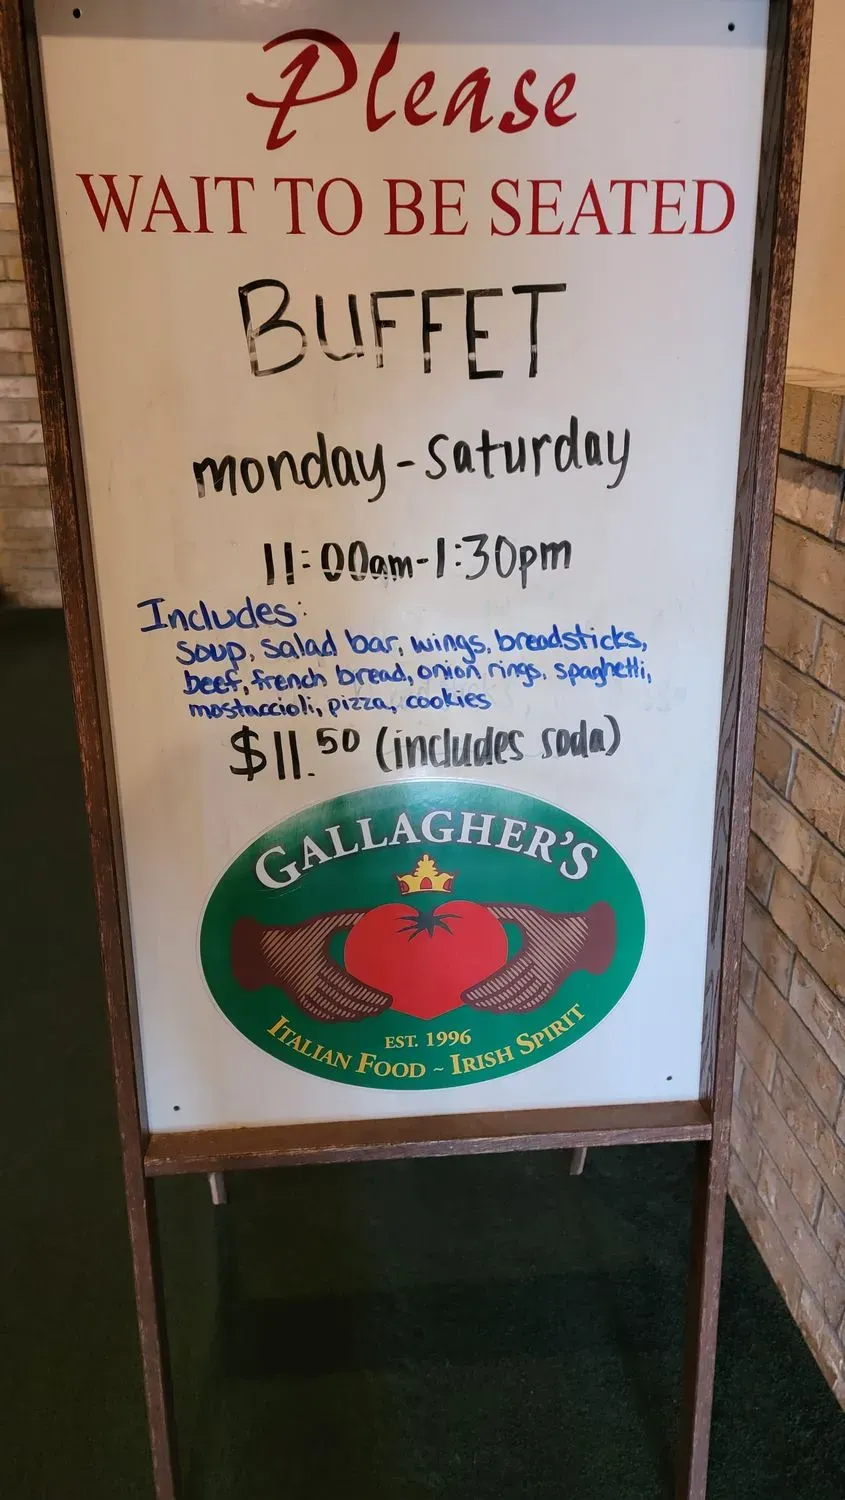 Please
WAIT TO BE SEATED
BUFFET
monday-saturday
11:00am-1:30pm
Includes:
soup, salad bar, wings, breadsticks,
beef, french bread, onion rings, spaghetti,
mostaccioli, pizza, cookies
$11.50 (includes soda)
GALLAGHER'S
EST. 1996
ITALIAN FOOD ~ IRISH SPIRIT